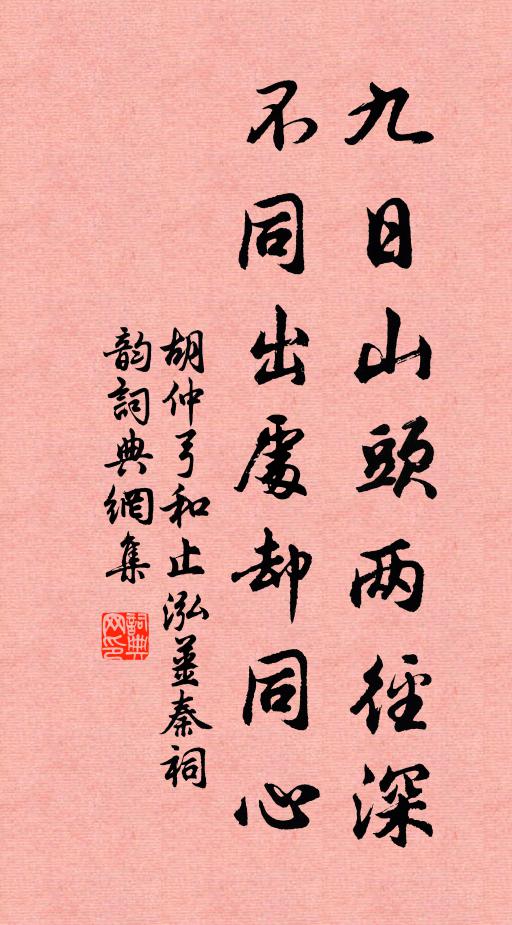 九日山頭两徑深
不同出處却同心
胡仲弓和止泓薑秦祠
韵詞典網集
詞典网印